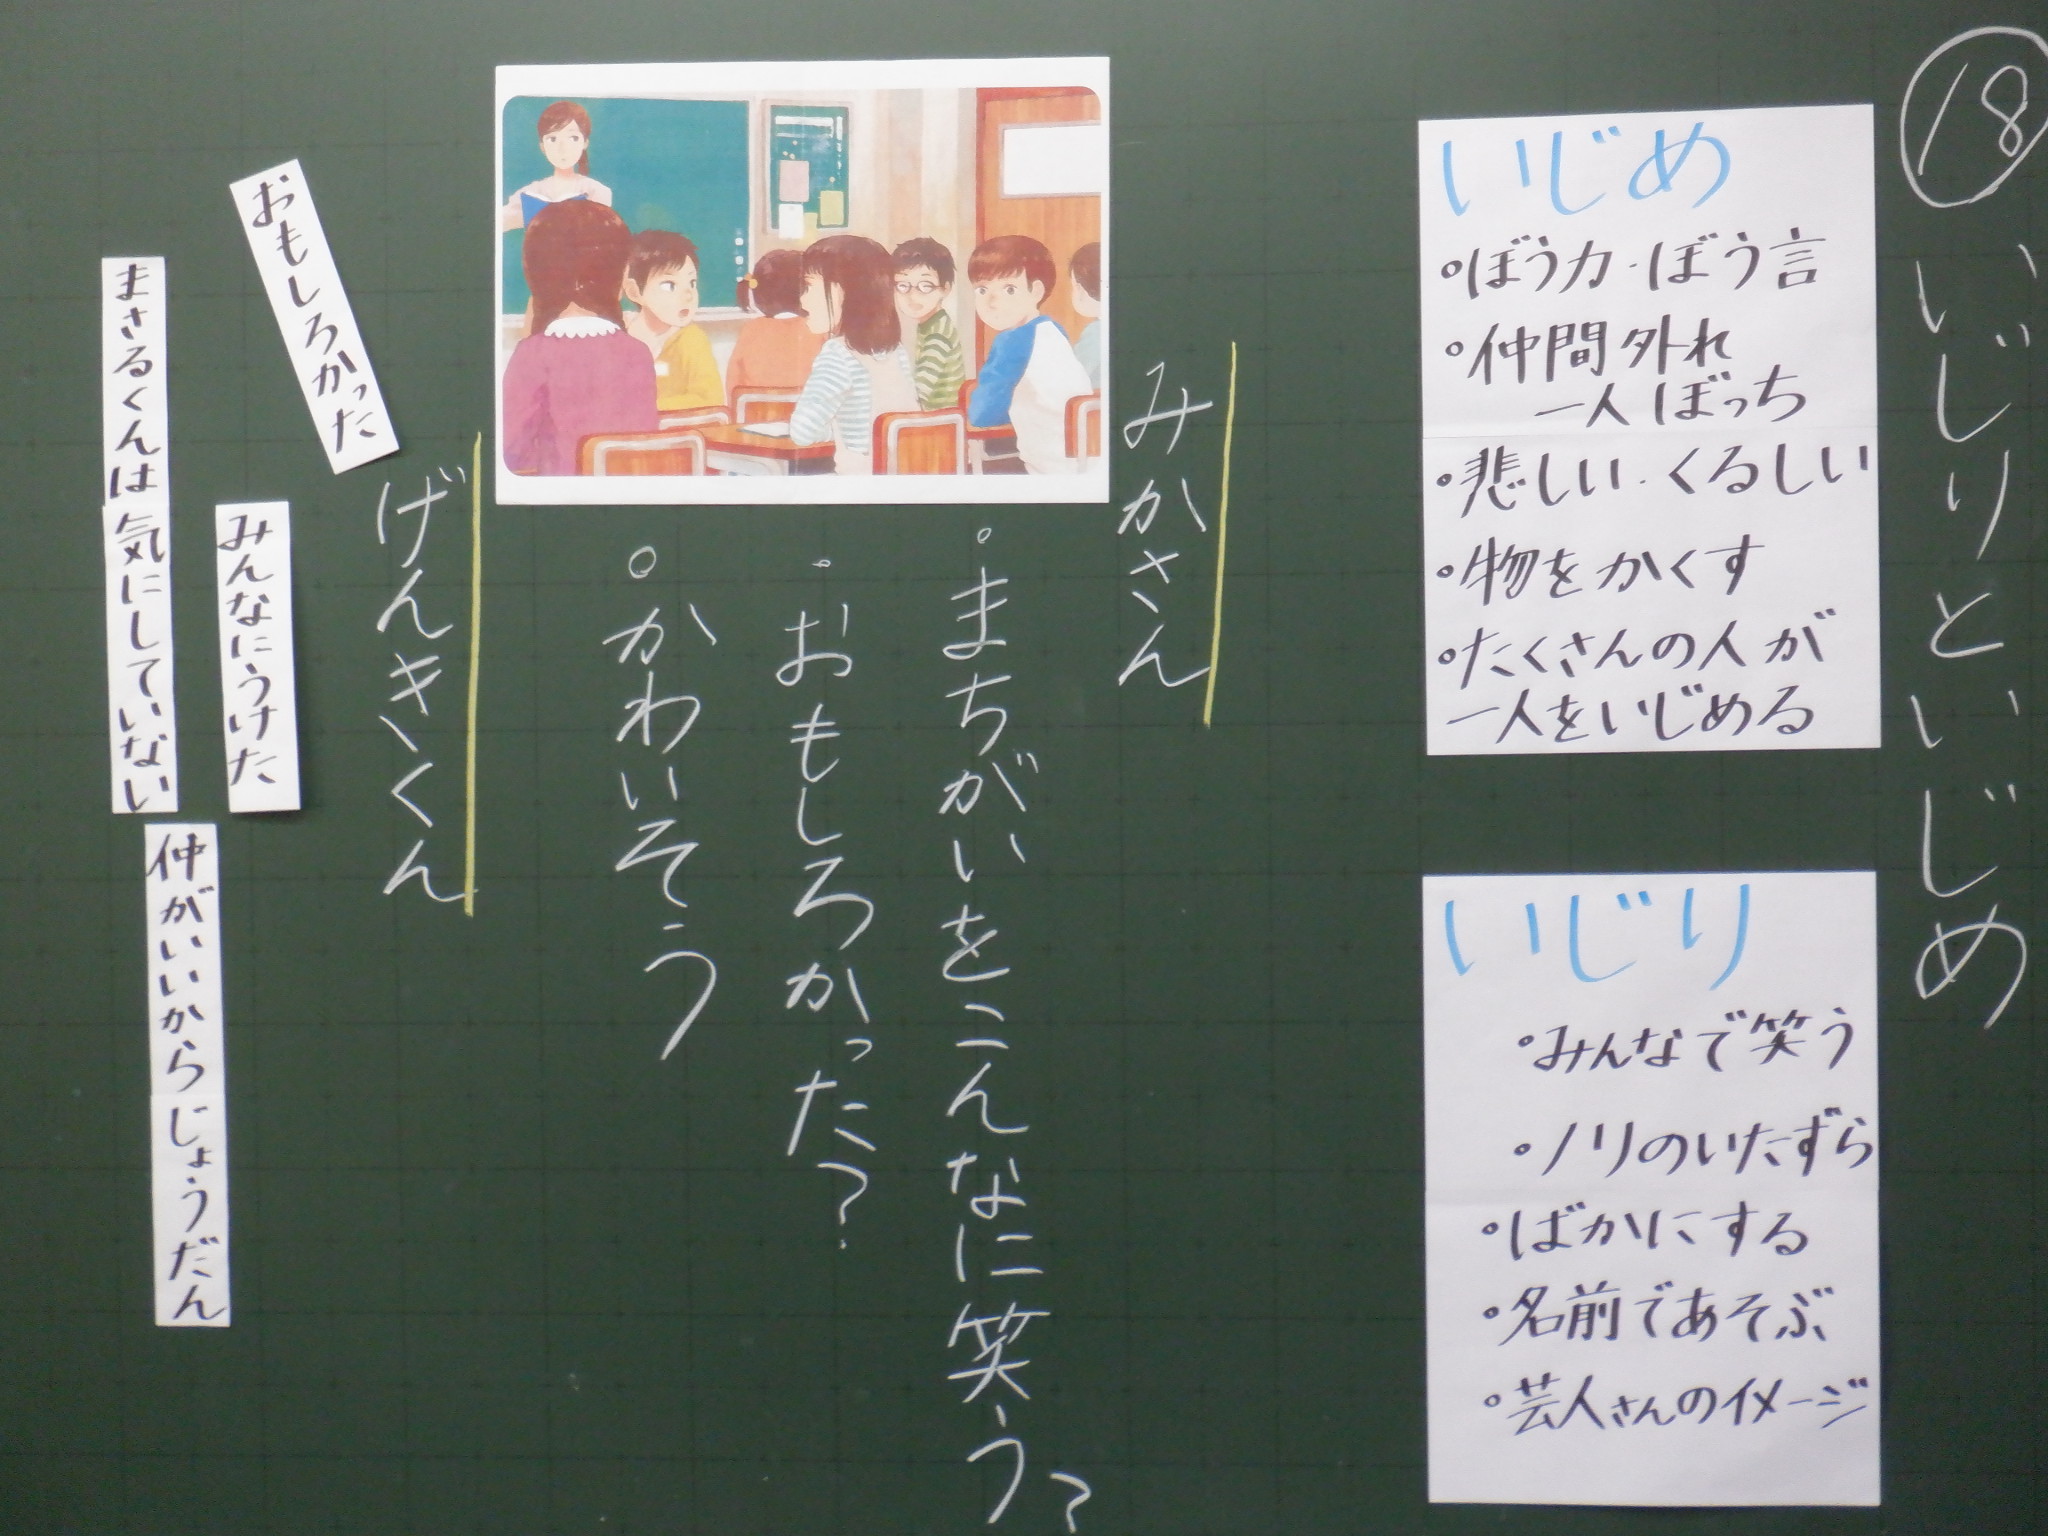 ⑱ いじりといじめ
いじめ
・ぼう力・ぼう言
・仲間外れ
一人ぼっち
・悲しい・くるしい
・物をかくす
・たくさんの人が
一人をいじめる
いじり
・みんなで笑う
・ノリのいたずら
・ばかにする
・名前であそぶ
・芸人さんのイメージ
みかさん
・まちがいをこんなに笑う?
・おもしろかった?
・かわいそう
げんきくん
おもしろかった
みんなにうけた
まさるくんは気にしていない
仲がいいからじょうだん